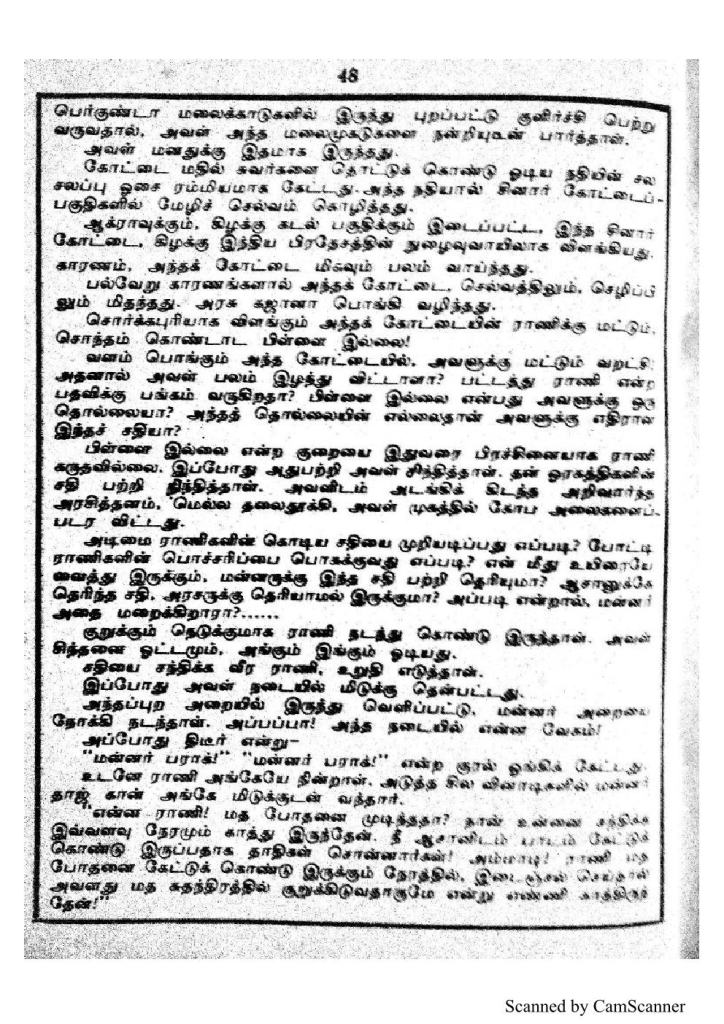 48
பெர்குண்டா மலைக்காடுகளில் இருந்து புறப்பட்டு குளிர்ச்சி பெற்று
வருவதால், அவள் அந்த மலைமுகடுகளை நன்றியுடன் பார்த்தாள்.
அவள் மனதுக்கு இதமாக இருந்தது.
கோட்டை மதில் சுவர்களை தொட்டுக் கொண்டு ஓடிய நதியின் சல
சலப்பு ஓசை ரம்மியமாக கேட்டது. அந்த நதியால் சினார் கோட்டைப்-
பகுதிகளில் மேழிச் செல்வம் கொழித்தது.
ஆக்ராவுக்கும், கிழக்கு கடல் பகுதிக்கும் இடைப்பட்ட, இந்த சினார்
கோட்டை, கிழக்கு இந்திய பிரதேசத்தின் நுழைவுவாயிலாக விளங்கியது.
காரணம், அந்தக் கோட்டை மிகவும் பலம் வாய்ந்தது.
பல்வேறு காரணங்களால் அந்தக் கோட்டை, செல்வத்திலும், செழிப்பி
லும் மிதந்தது. அரசு கஜானா பொங்கி வழிந்தது.
சொர்க்கபுரியாக விளங்கும் அந்தக் கோட்டையின் ராணிக்கு மட்டும்,
சொந்தம் கொண்டாட பிள்ளை இல்லை!
வளம் பொங்கும் அந்த கோட்டையில், அவளுக்கு மட்டும் வறட்சி;
அதனால் அவள் பலம் இழந்து விட்டாளா? பட்டத்து ராணி என்ற
பதவிக்கு பங்கம் வருகிறதா? பிள்ளை இல்லை என்பது அவளுக்கு ஒரு
தொல்லையா? அந்தத் தொல்லையின் எல்லைதான் அவளுக்கு எதிரான
இந்தச் சதியா?
பிள்ளை இல்லை என்ற குறையை இதுவரை பிரச்சினையாக ராணி
கருதவில்லை. இப்போது அதுபற்றி அவள் சிந்தித்தாள். தன் ஓரகத்திகளின்
சதி பற்றி நிந்தித்தாள். அவளிடம் அடங்கிக் கிடந்த அறிவார்ந்த
அரசித்தனம், மெல்ல தலைதூக்கி, அவள் முகத்தில் கோப அலைகளைப்-
படர விட்டது.
அடிமை ராணிகளின் கொடிய சதியை முறியடிப்பது எப்படி? போட்டி
ராணிகளின் பொச்சரிப்பை பொசுக்குவது எப்படி? என் மீது உயிரையே
வைத்து இருக்கும், மன்னருக்கு இந்த சதி பற்றி தெரியுமா? ஆசானுக்கே
தெரிந்த சதி, அரசருக்கு தெரியாமல் இருக்குமா? அப்படி என்றால், மன்னர்
அதை மறைக்கிறாரா?......
குறுக்கும் நெடுக்குமாக ராணி நடந்து கொண்டு இருந்தாள். அவள்
சித்தனை ஓட்டமும், அங்கும் இங்கும் ஓடியது.
சதியை சந்திக்க வீர ராணி, உறுதி எடுத்தாள்.
இப்போது அவள் நடையில் மிடுக்கு தென்பட்டது.
அந்தப்புற அறையில் இருந்து வெளிப்பட்டு, மன்னர் அறையை
நோக்கி நடந்தாள். அப்பப்பா! அந்த நடையில் என்ன வேகம்!
அப்போது திடீர் என்று-
"மன்னர் பராக்!" "மன்னர் பராக்!" என்ற குரல் ஓங்கிக் கேட்டது.
உடனே ராணி அங்கேயே நின்றாள். அடுத்த சில வினாடிகளில் மன்னர்
தாஜ் கான் அங்கே மிடுக்குடன் வந்தார்.
"என்ன ராணி! மத போதனை முடிந்ததா? நான் உன்னை சந்திக்க
இவ்வளவு நேரமும் காத்து இருந்தேன். நீ ஆசானிடம் பாடம் கேட்டுக்
கொண்டு இருப்பதாக தாதிகள் சொன்னார்கள்! அம்மாடி! ராணி மத
போதனை கேட்டுக் கொண்டு இருக்கும் நேரத்தில், இடைஞ்சல் செய்தால்
அவளது மத சுதந்திரத்தில் குறுக்கிடுவதாகுமே என்று எண்ணி காத்திருந்
தேன்!"
Scanned by CamScanner